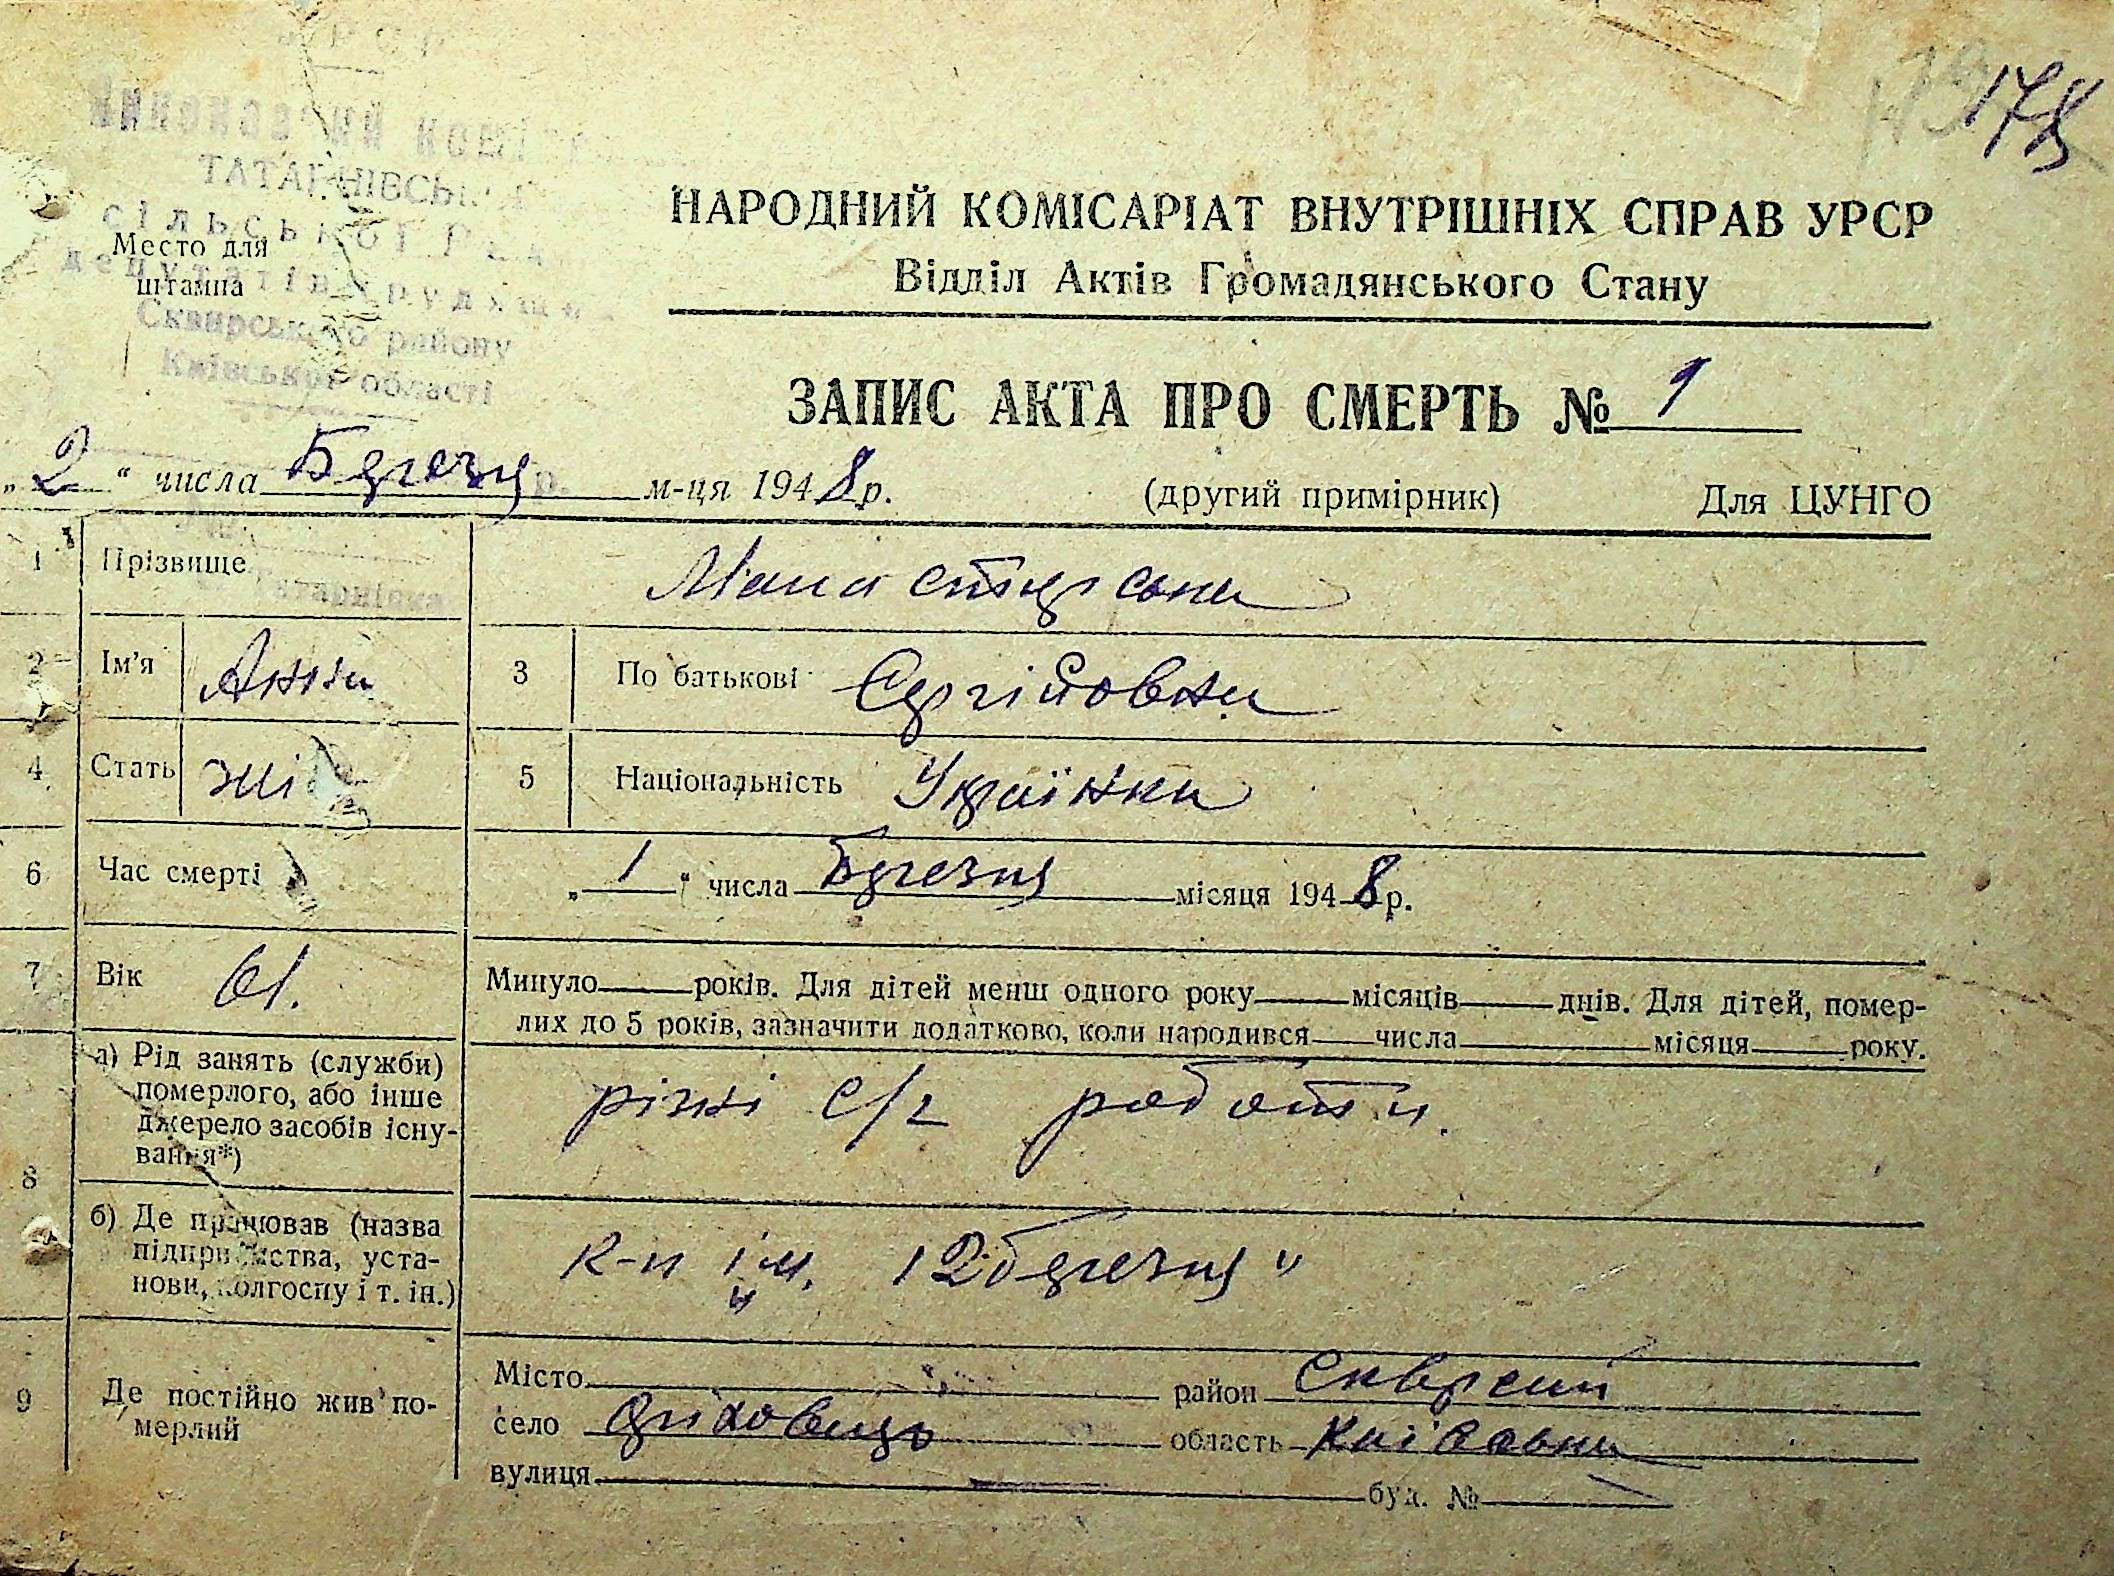 178
ТАТАРІВСЬКОЇ
сільської Ради
депутатів трудящих
Сквирського району
Київської області
Место для
штампа
НАРОДНИЙ КОМІСАРІАТ ВНУТРІШНІХ СПРАВ УРСР
Відділ Актів Громадянського Стану
ЗАПИС АКТА ПРО СМЕРТЬ № 9
„2“ числа Березня м-ця 1948р. (другий примірник) Для ЦУНГО
1 Прізвище Манастирська
2 Ім’я Анна 3 По батькові Сергійовна
4 Стать жі 5 Національність Українка
6 Час смерті „1“ числа Березня місяця 1948р.
7 Вік 61. Минуло років. Для дітей менш одного року місяців днів. Для дітей, помер-
лих до 5 років, зазначити додатково, коли народився числа місяця року.
8 а) Рід занять (служби)
померлого, або інше
джерело засобів існу-
вання*)
різні с/г роботи.
б) Де працював (назва
підприємства, уста-
нови, колгоспу і т. ін.)
к-п ім. „12 березня“
9 Де постійно жив по-
мерлий
Місто район Сквирский
село область Київська
вулиця буд. №